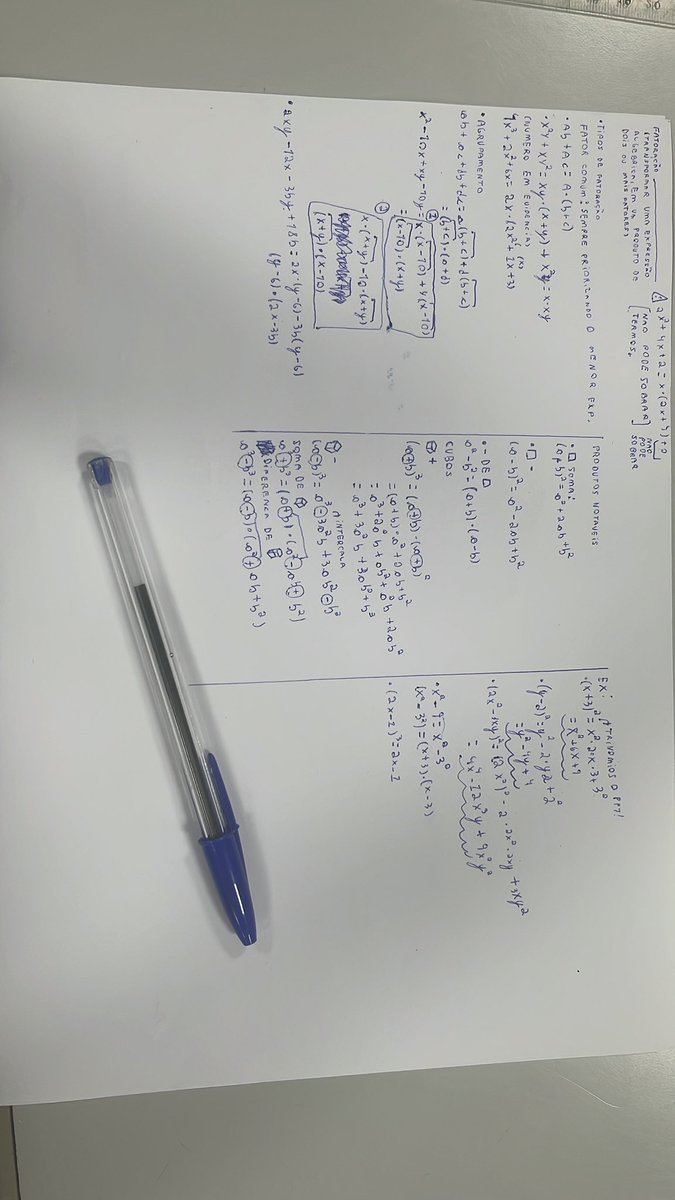 FATORAÇÃO
(TRANSFORMAR UMA EXPRESSÃO
ALGÉBRICA, EM UM PRODUTO DE
DOIS OU MAIS FATORES)
2x² + 4x + 2 = x · (2x + 4) + 2
[NÃO PODE SOBRAR TERMOS]
NÃO PODE SOBRAR
• TIPOS DE FATORAÇÃO
FATOR COMUM: SEMPRE PRIORIZANDO O MENOR EXP.
• Ab + Ac = A · (b + c)
• x²y + xy² = xy · (x + y) + x²y = x · xy
(NÚMERO EM EVIDÊNCIA)
4x³ + 2x² + 6x = 2x · (2x² + 1x + 3)
• AGRUPAMENTO
ab + ac + db + dc = a(b + c) + d(b + c)
= (b + c) · (a + d)
x² - 10x + xy - 10y = x · (x - 10) + y(x - 10)
= (x - 10) · (x + y)
x · (x + y) - 10 · (x + y)
(x + y) · (x - 10)
• 2xy - 12x - 3by + 18b = 2x · (y - 6) - 3b(y - 6)
(y - 6) · (2x - 3b)
PRODUTOS NOTAVEIS
• □ SOMA:
(a + b)² = a² + 2ab + b²
• □ -
(a - b)² = a² - 2ab + b²
• - DE □
a² - b² = (a + b) · (a - b)
CUBOS
+
(a + b)³ = (a + b) · (a + b)²
= (a + b) · a² + 2ab + b²
= a³ + 2a²b + ab² + a²b + 2ab²
= a³ + 3a²b + 3ab² + b³
-
INTERCALA
(a - b)³ = a³ - 3a²b + 3ab² - b³
SOMA DE
a³ + b³ = (a + b) · (a² - ab + b²)
DIFERENÇA DE
a³ - b³ = (a - b) · (a² + ab + b²)
EX: TRINÔMIOS
• (x + 3)² = x² · 2 · x · 3 + 3²
= x² + 6x + 9
• (y - 2)² = y² - 2 · y2 + 2²
= y² - 4y + 4
• (2x² - 3xy)² = (2x²)² - 2 · 2x² · 3xy + 3xy²
= 4x⁴ - 12x³y + 9x²y²
• x² - 9 = x² - 3²
(x² - 3²) = (x + 3) · (x - 3)
• (2x - 1)³ = 2x - 1